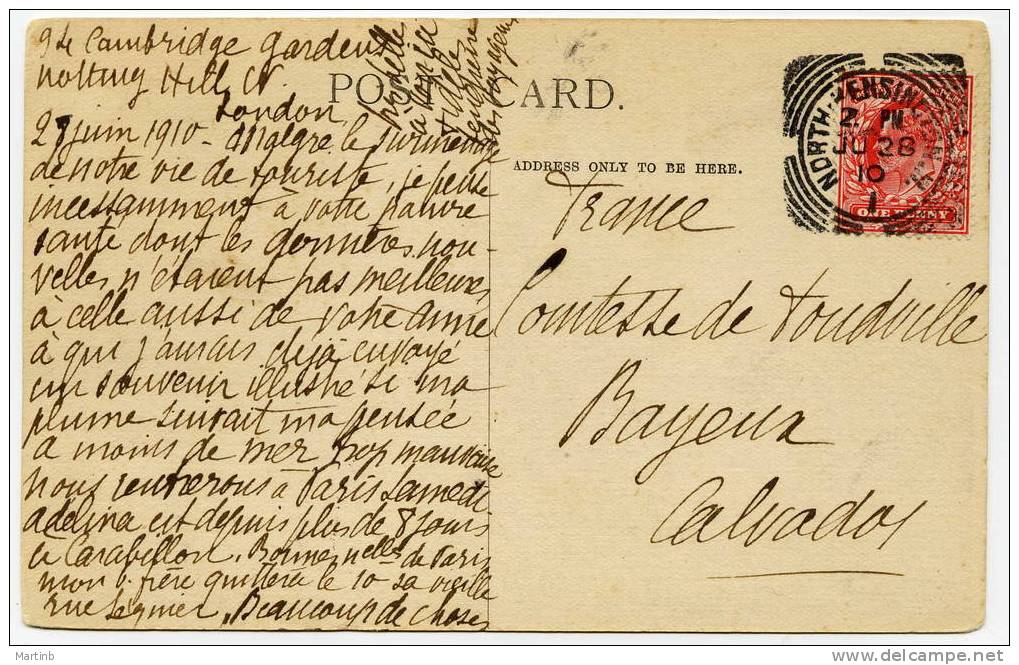 94 Cambridge Gardens
Notting Hill, W.
London
28 juin 1910 - Malgré le surmenage
de notre vie de touriste, je pense
incessamment à votre pauvre
santé dont les dernières nou-
velles n'étaient pas meilleures,
à celle aussi de votre amie
à qui j'aurais déjà envoyé
un souvenir illustré si ma
plume suivait ma pensée
a moins de mer trop mauvaise
nous rentrerons à Paris samedi
adelina est depuis plus de 8 jours
à Carabillon. Bonnes nelles de Paris
mon b. frère quittera le 10 sa vieille
rue Séguier. Beaucoup de choses
POST CARD.
ADDRESS ONLY TO BE HERE.
NORTH-KENSINGTON
2. PM
JU 28
10
1
ONE PENNY
France
Comtesse de Toustville
Bayeux
Calvados
Martinb